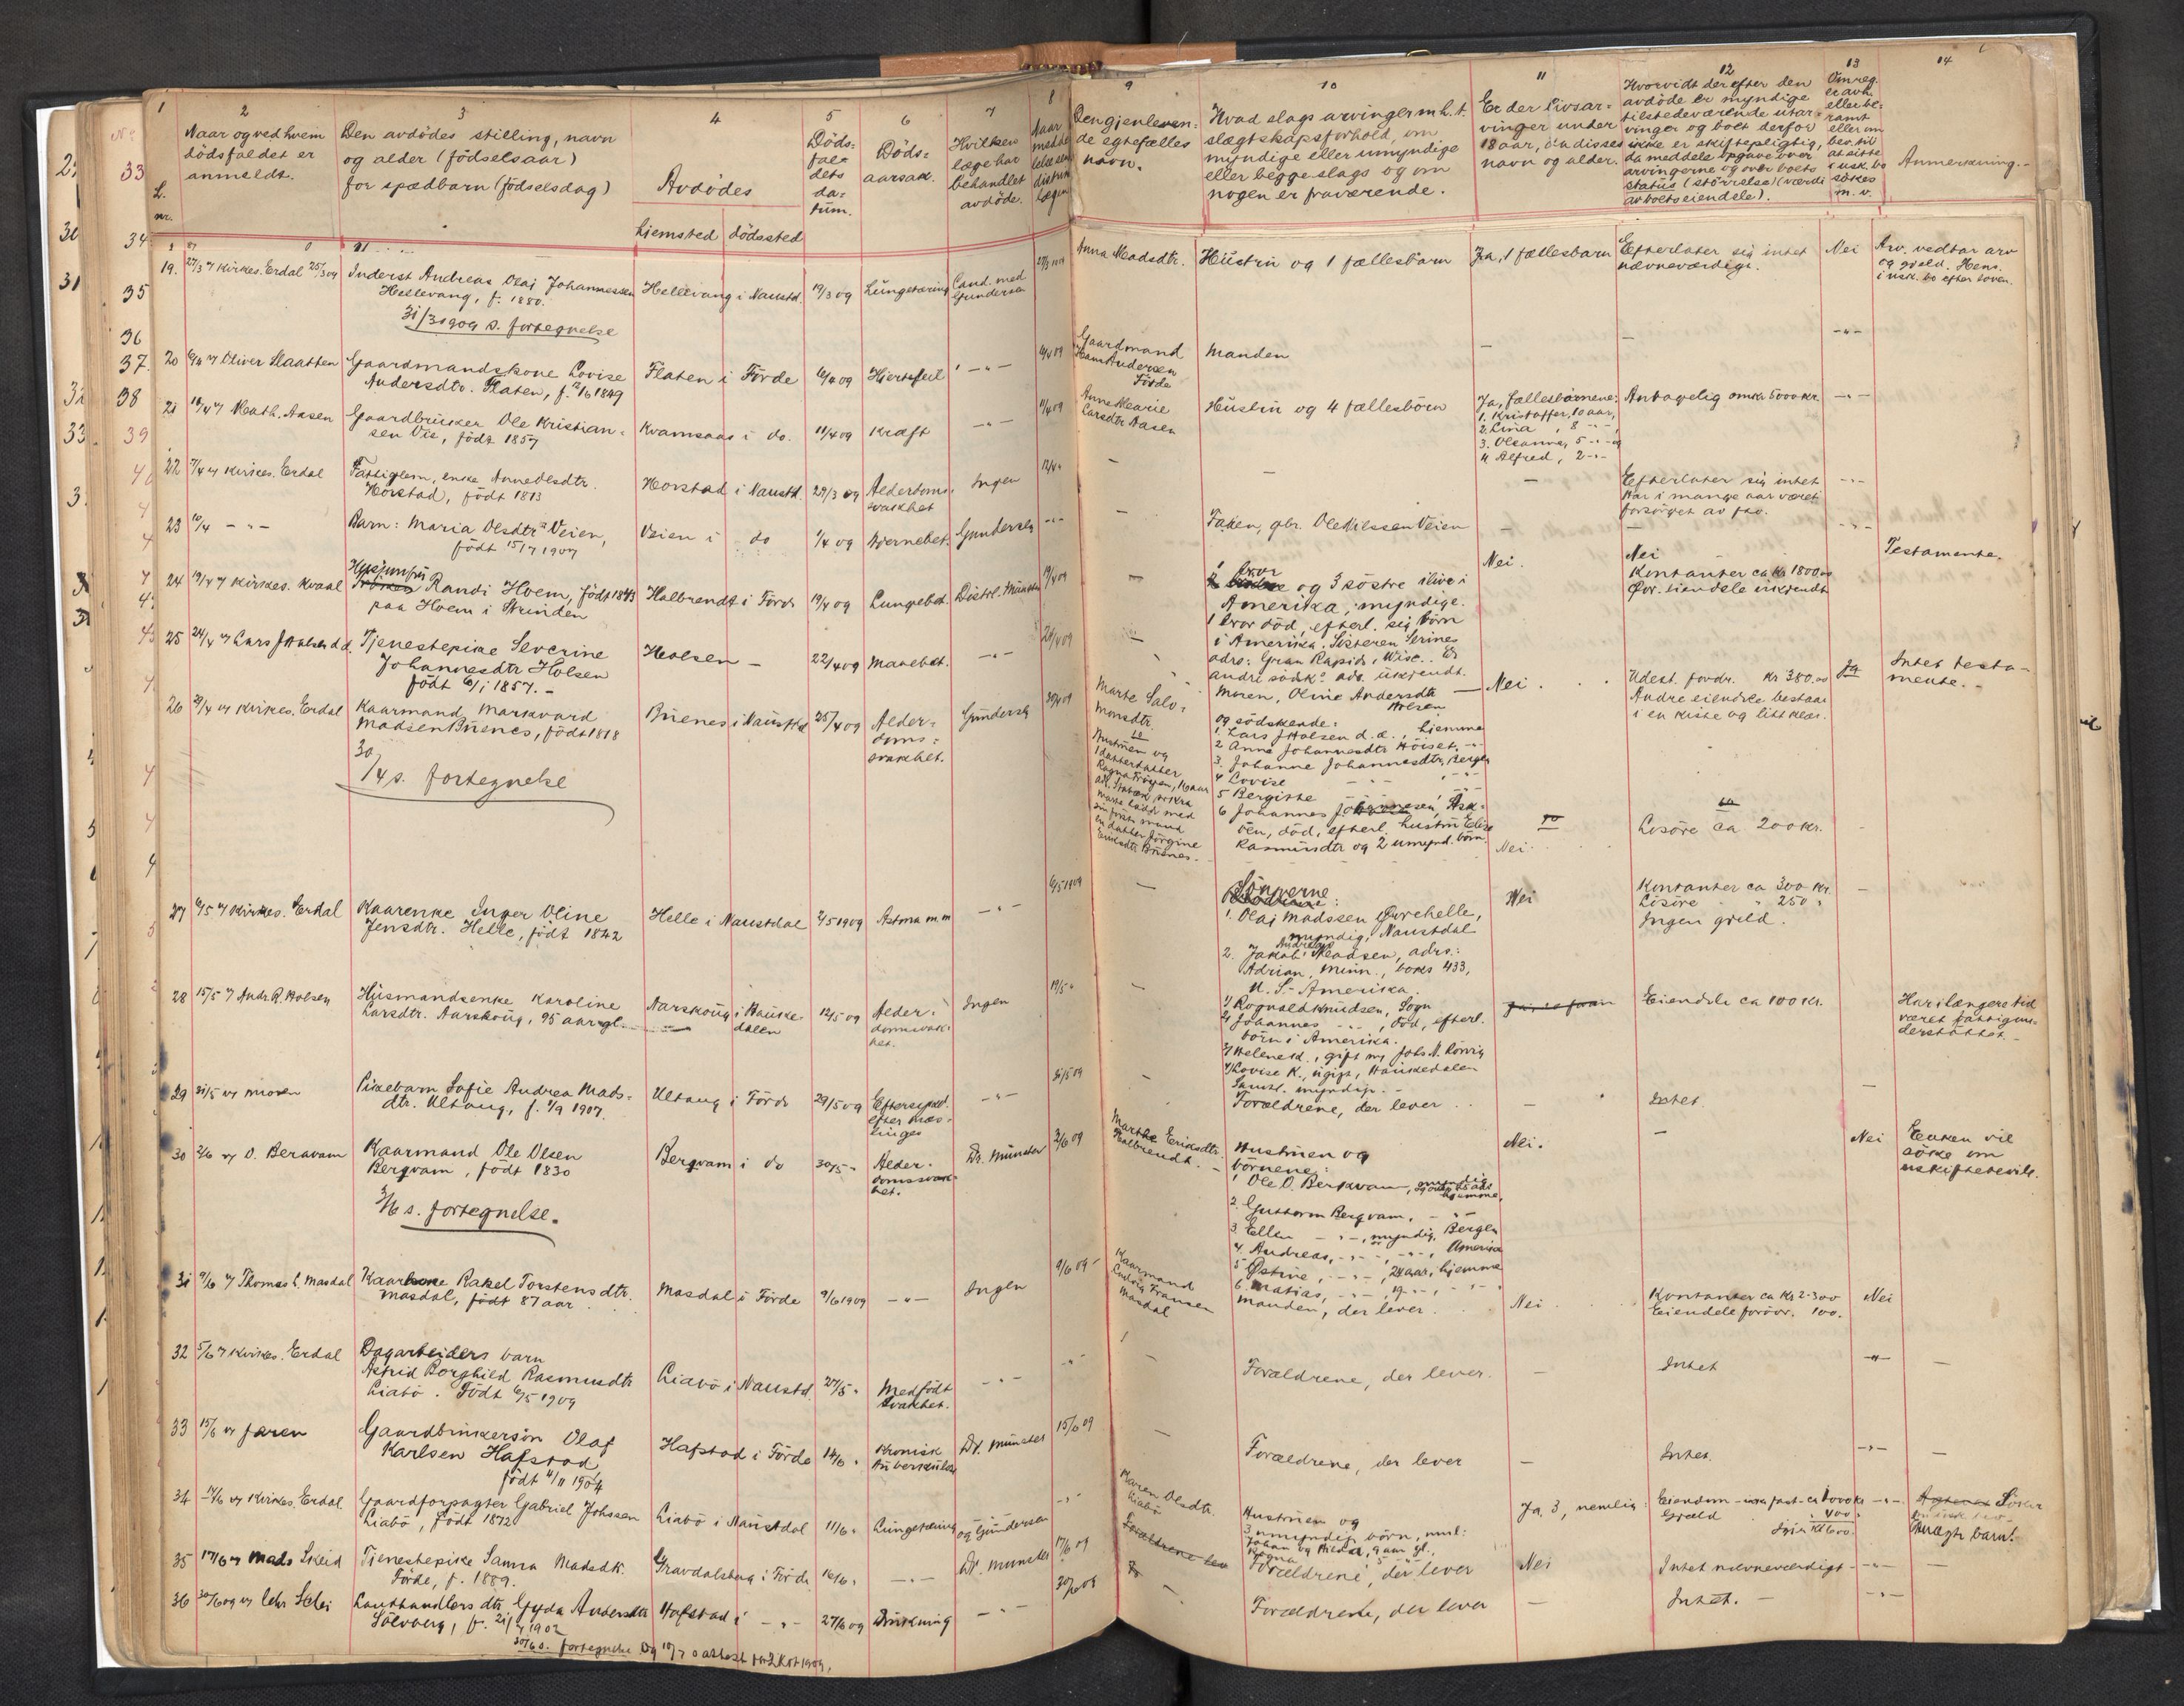 1 2 3 4 5 6 7 8
L. nr.
Naar og ved hvem
dödsfaldet er
anmeldt.
Den avdödes stilling, navn
og alder (födselsaar)
for spædbarn (födselsdag)
Avdödes
hjemsted dödssted
Döds-
fal-
dets
da-
tum.
Döds-
aarsak.
Hvilken
læge har
behandlet
avdöde.
9 10 11 12 13 14
Den gjenleven-
de egtefælles
navn.
Hvad slags arvinger m.h.t.
slegtskapsforhold, om
myndige eller umyndige
eller begge slags og om
nogen er fraværende.
Er der livsar-
vinger under
18 aar, da disses
navn og alder.
Hvorvidt der efter den
avdöde er myndige
tilstedeværende utar-
vinger og boet derfor
ikke er skiftepligtig,
da meddele opgave over
arvingerne og over boets
status (störrelse) (værdi
av boets eiendele).
Anmerkning.
19. 27/3 v kirkes. Erdal 25/3 09
Inderst Andreas Olai Johannessen
Hellevang, f. 1880.
31/3 1909 s. fortegnelse
Hellevang i Naustd. 19/3 09 Lungetæring Cand. med
Gundersen
27/3 1909
Anna Madsdtr. Hustru og 1 fællesbarn Ja, 1 fællesbarn Efterlater sig intet
nævneværdigt. Nei Arv. vedtar arv
og gjeld. Hens.
i usk. bo efter loven.
20 6/4 v Oliver Slaatten Gaardmandskone Lovise
Andersdtr. Flaten, f. 12/6 1849
Flaten i Förde 6/4 09 Hjertefeil -"-
6/4 09
Gaardmand
Hans Andersen
Förde
Manden - - -"-
21 11/4 v Math. Aasen Gaardbruker Ole Kristian-
sen Vie, födt 1857
Kvamsaas i do. 11/4 09 Kræft -"-
11/4 09
Anne Marie
Larsdtr Aasen
Hustru og 4 fællesbörn
Ja, fællesbörnene:
1. Kristoffer, 10 aar,
2. Lina, 8 -"-,
3. Oleanna, 5 -"- og
4 Alfred, 2 -"-
Antagelig omkr 5000 kr. -"-
22 7/4 v kirkes. Erdal Fattiglem, enke Anne Olsdtr.
Horstad, födt 1813
Horstad i Naustd. 29/3 09 Alderdoms-
svakhet Ingen 12/4 "
- - - Efterlater sig intet
Har i mange aar været
forsörget av fsv. -"-
23 10/4 -"- Barn: Maria Olsdtr Veien,
födt 15/7 1907
Veien i do 1/4 09 Hjernebet. Gundersen -"-
- Faren, gbr. Ole Nilssen Veien - - -"-
24 19/4 v kirkes. Kvaal Husjomfru
Randi Hoem, födt 1843
paa Hoem i Strinden
Halbrendt i Förde 19/4 09 Lungebet. Distrl. Münster 19/4 09
- 1 bror og 3 söstre ilive i
Amerika, myndige.
1 bror död, efterl. sig börn
i Amerika. Sösteren Serines
adrs: Gran Rapids, Wisc. De
andre södsk. ads. ukjendt.
Nei. Nei
Kontanter ca kr 1800.00
Övr. eiendele ukjendt
Testamente.
25 24/4 v Lars J Holsen d.d. Tjenestepike Severine
Johannesdtr Holsen
födt 6/1 1857.-
Holsen - 22/4 09 Mavebet. -"- 24/4 09
- Moren, Oline Andersdtr
Holsen
og södskende:
1. Lars J Holsen d.d., hjemme
2 Anna Johannesdtr Höiset, -"-
3. Johanne Johannesdtr, Bergen
4 Lovise -"- , -"-
5 Bergitte -"- , -"-
6 Johannes Johannesen, Ask-
öen, död, efterl. hustru Elise
Rasmusdtr og 2 umynd. börn.
Nei. Udest. fordr. kr 380.00
Andre eiendele bestaar
i en kiste og litt klær.
Ja Intet testa-
mente.-
26 30/4 v kirkes. Erdal Kaarmand Markvard
Madsen Buenes, födt 1818
30/4 s. fortegnelse
Buenes i Naustdal 25/4 09 Alder-
doms-
svakhet. Gundersen 30/4 09
Marte Salo-
monsdtr.
Hustruen og
1 datterdatter
Ragna Fröysen, 16 aar
Marte hadde med
sin första mand
en datter Jörgine
Emilsdtr Buenes.-
Nei. Lösöre ca 200 kr.
27 6/5 v kirkes. Erdal Kaarenke Inger Oline
Jensdtr. Helle, födt 1842
Helle i Naustdal 2/5 1909 Astma m.m -"- 6/5 1909
- Sönnerne:
1. Olai Madssen Övrehelle,
myndig, Naustdal
2. Jakob Andreas Madsen, adrs:
Adrian, Minn., boks 433,
U.S.-Amerika.
Nei Kontanter ca 300 kr.
Lösöre " 250 "
Ingen gjeld. -
28 15/5 v Andr. R. Holsen Husmandsenke Karoline
Larsdtr. Aarskoug, 95 aar gl.
Aarskoug i Hauke-
dalen 12/5 09 Alder-
domssvak-
het. Ingen 19/5 "
- 1/ Rognald Knudsen, Sogn
2/ Johannes -"-, död, efterl.
börn i Amerika.
3/ Helene K., gift m/ Johs N. Rörvig
4/ Lovise K., ugift, Haukedalen
Samtl. myndige.-
Eiendele ca 100 kr. Har i længere tid
været fattigun-
derstöttet.-
29 31/5 v moren Pikebarn Sofie Andrea Mads-
dtr. Ultang, f. 4/9 1907.
Ultang i Förde 29/5 09 Eftersykd.
efter mæs-
linger -"- 31/5 09
- Forældrene, der lever - Intet. -
30 2/6 v O. Bergvam Kaarmand Ole Olsen
Bergvam, födt 1830
3/6 s. fortegnelse.
Bergvam i do 30/5 " Alder-
domssvak-
het. Dr. Münster 2/6 09
Marthe Eriksdtr.
Halbrendt.-
Hustruen og
börnene:
1 Ole O. Bergvam, myndig
2. Guttorm Bergvam, -"-
3. Ellen -"-, myndig, Bergen
4. Andreas, -"-, -"-, Amerika
5 Östine, -"-, 24 aar, hjemme
6 Matias, -"-, 19 -"-, -"-
Nei. - Nei Enken vil
söke om
uskiftebevilg.
31 9/6 v Thomas L. Masdal Kaarkone Rakel Torstensdtr.
Masdal, födt 87 aar
Masdal i Förde 9/6 1909 -"- Ingen 9/6 09
Kaarmand
Ludvig Fransen
Masdal
Manden, der lever. Nei Kontanter ca kr 2-300
Eiendele forövr. 100. Nei
32 5/6 v kirkes. Erdal Dagarbeiders barn
Astrid Borghild Rasmusdtr
Liabö. Födt 6/5 1909
Liabö i Naustd. 27/5 " Medfödt
svakhet. -"- -"-
- Forældrene, der lever. - Intet -"- -
33 15/6 v faren Gaardbrukersön Olaf
Karlsen Hafstad
födt 4/11 1904
Hafstad i Förde 14/6 " Kronisk
tuberkulose Dr. Münster 15/6 09
- Forældrene, der lever - Intet. -"- -
34 14/6 v kirkes. Erdal Gaardforpagter Gabriel Johssen
Liabö, födt 1872
Liabö i Naustdal 11/6 " Lungetæring og Gundersen -"-
Karen Olsdtr.
Liabö
Hustruen og
3 umyndige börn, nml:
Johan og Hilda, 9 aar gl.
Ragna, 5 -"-
Ja, 3, nemlig: Eiendom - - ca 1000 kr
Gjæld 400
-"- Söker
Umægte barn!
35 17/6 v Mads Skeid Tjenestepike Samra Madsdtr.
Förde, f. 1889.
Gravdalsberg i Förde 16/6 " -"- Dr. Münster 17/6 09
Forældrene, der lever Nei Intet nævneværdigt -"- -
36 30/6 09 v lehr Schei Landhandlers dtr Gyda Andersdtr
Sölvberg, f. 21/4 1902
30/6 s. fortegnelse
Hafstad i -"- 27/6 09 Drukning -"- 30/6 09
- Forældrene, der lever - Intet. - -"-